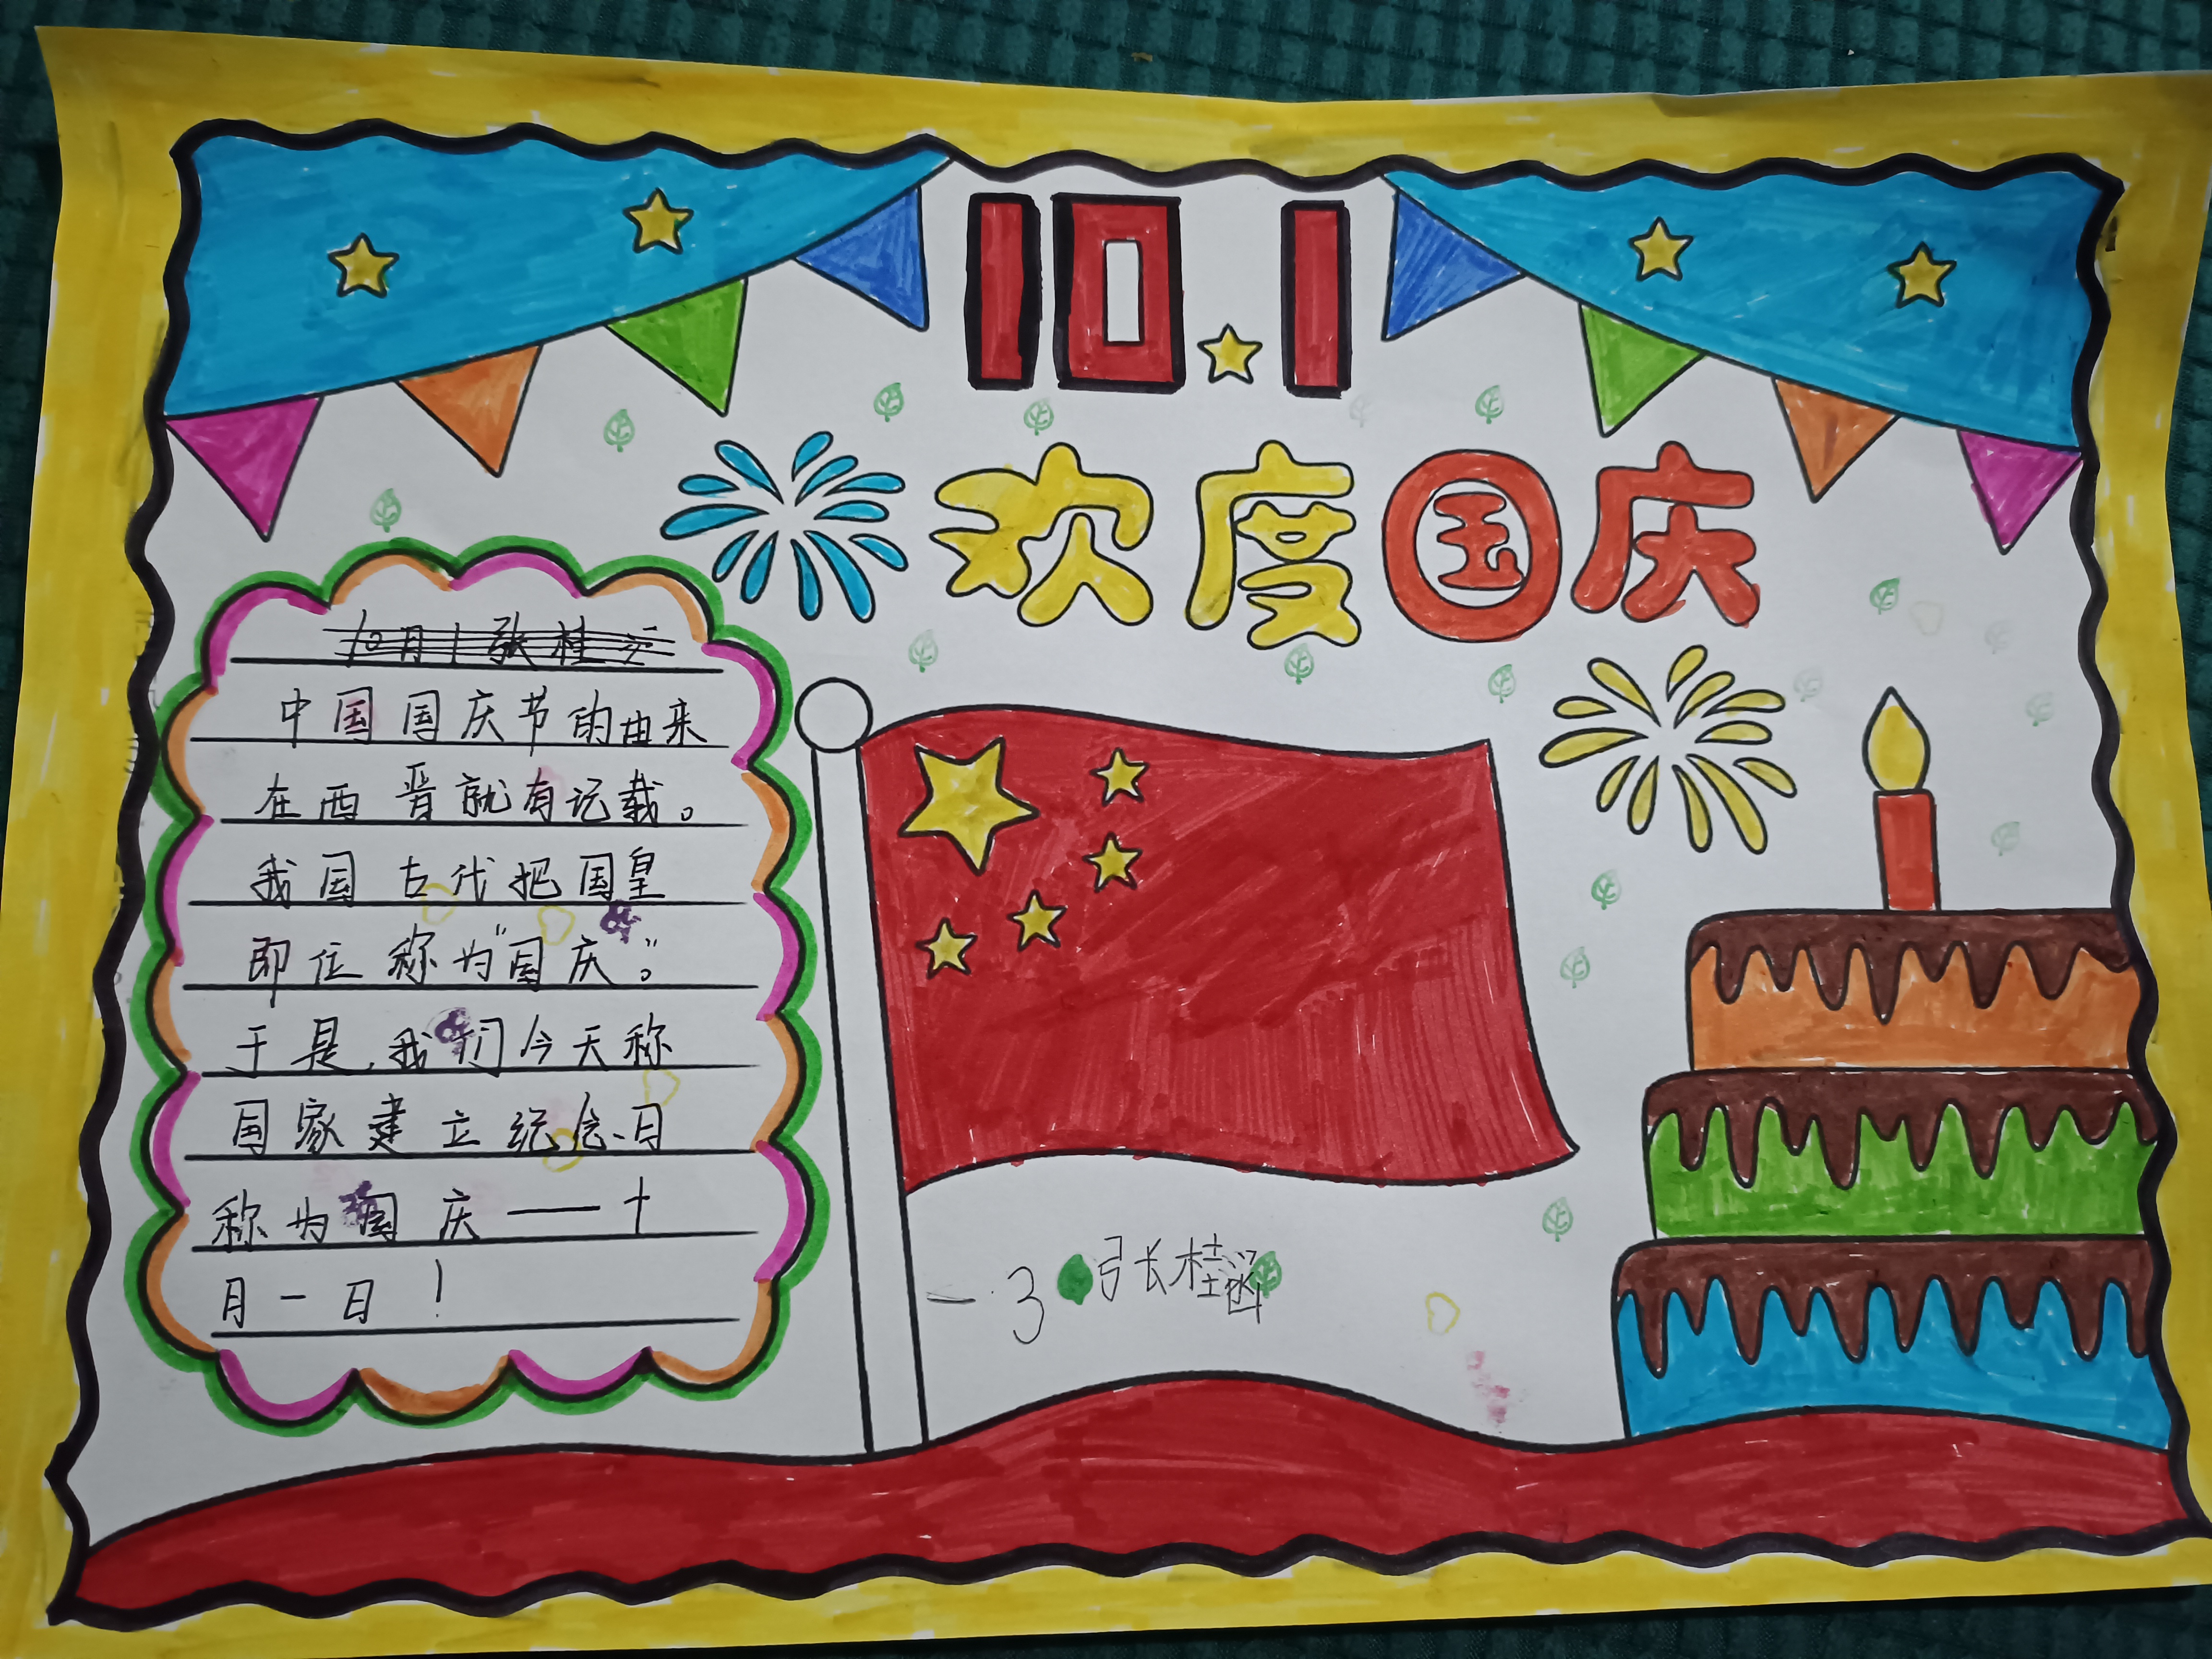 10.1
欢度国庆
10月1张桂
中国国庆节的由来
在西晋就有记载。
我国古代把国皇
即位称为"国庆"。
于是,我们今天称
国家建立纪念日
称为国庆——十
月一日!
一.3 张桂函